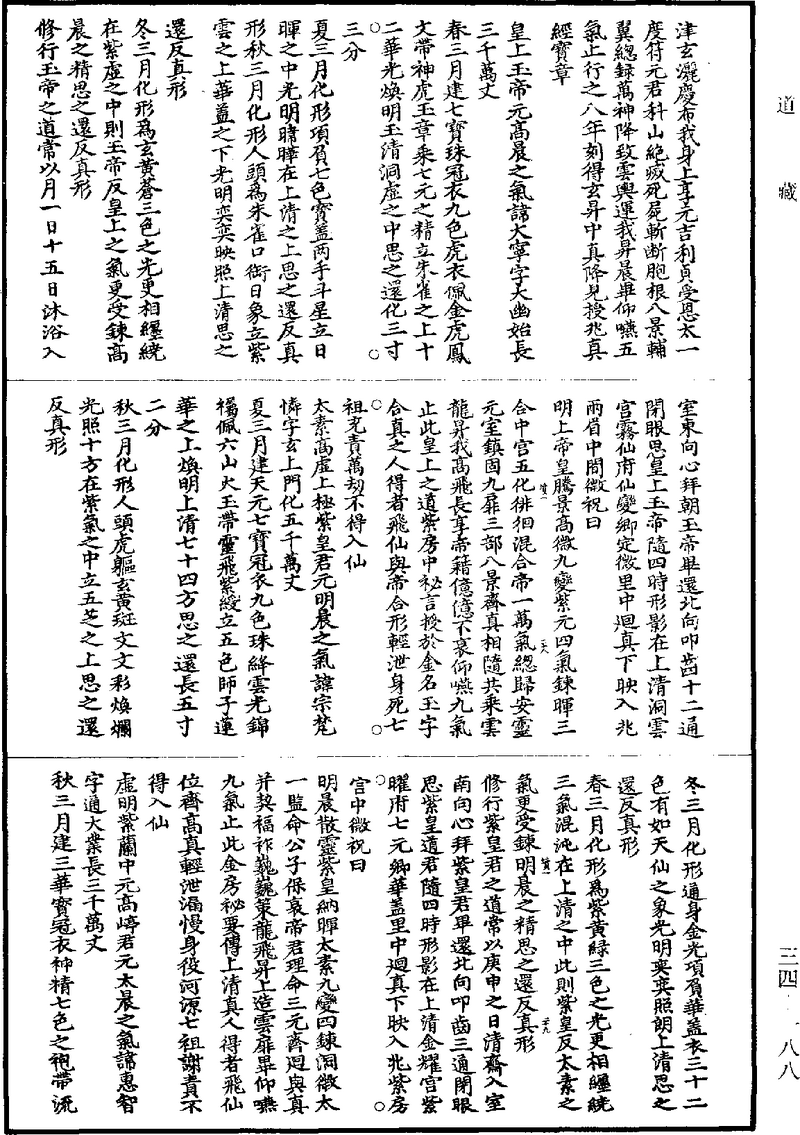 道藏
津玄灑慶布我身上享元吉利貞受恩太一
度符元君科山絕滅死屍斬斷胞根八景輔
翼總録萬神降致雲輿運我昇晨畢仰嚥五
氣止行之八年刻得玄昇中真降見授兆真
經寶章
皇上玉帝元高晨之氣諱大寧字大幽始長
三千萬丈
春三月建七寶珠冠衣九色虎衣佩金虎鳳
文帶神虎玉章乘七元之精立朱雀之上十
二華光煥明玉清洞虛之中思之還化三寸
三分
夏三月化形項負七色寶蓋两手斗星立日
暉之中光明暐曄在上清之上思之還反真
形秋三月化形人頭爲朱雀口銜日象立紫
雲之上華蓋之下光明奕奕映照上清思之
還反真形
冬三月化形爲玄黃蒼三色之光更相纒繞
在紫虛之中則玉帝反皇上之氣更受鍊高
晨之精思之還反真形
修行玉帝之道常以月一日十五日沐浴入
室東向心拜朝玉帝畢還北向叩齒十二通
閉眼思皇上玉帝隨四時形影在上清洞雲
宫霧仙府仙變鄉定微里中迴真下映入兆
兩眉中間微祝曰
明上帝皇騰景高微九變紫元四氣鍊暉三
合中宫五化徘徊混合帝一萬氣總歸安靈
元室鎮固九扉三部八景齊真相隨共乘雲
龍昇我高飛長享帝籍億億不衰仰嚥九氣
止此皇上之道紫房中祕言授於金名玉字
合真之人得者飛仙與帝合形輕泄身死七
祖充責萬劫不得入仙
太素高虛上極紫皇君元明晨之氣諱宗梵
憐字玄上門化五千萬丈
夏三月建天元七寶冠衣九色珠絳雲光錦
襡佩六山火玉帶靈飛紫綬立五色師子蓮
華之上煥明上清七十四方思之還長五寸
二分
秋三月化形人頭虎軀玄黃斑文文彩煥爛
光照十方在紫氣之中立五芝之上思之還
反真形
冬三月化形通身金光項負華蓋衣三十二
色有如天仙之象光明奕奕照朗上清思之
還反真形
春三月化形爲紫黄緑三色之光更相纒繞
三氣混沌在上清之中此則紫皇反太素之
氣更受鍊明晨之精思之還反真形
修行紫皇君之道常以庚申之日清齋入室
南向心拜紫皇君畢還北向叩齒三通閉眼
思紫皇道君隨四時形影在上清金耀宫紫
曜府七元鄉華蓋里中迴真下映入兆紫房
宫中微祝曰
明晨散靈紫皇納暉太素九變四鍊洞微太
一監命公子保衰帝君理命三元齊迴與真
并契福祚巍巍策龍飛昇上造雲扉畢仰嚥
九氣止此金房祕要傳上清真人得者飛仙
位齊高真輕泄漏慢身役河源七祖謝責不
得入仙
虛明紫蘭中元高崢君元太晨之氣諱惠智
字通大業長三千萬丈
秋三月建三華寶冠衣神精七色之袍帶流
三四-一八八